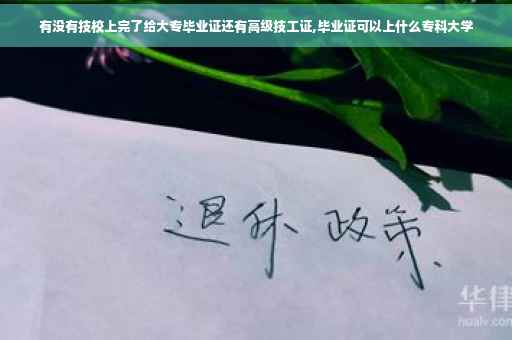 有没有技校上完了给大专毕业证还有高级技工证,毕业证可以上什么专科大学
退休 政策
华律
hualv.com